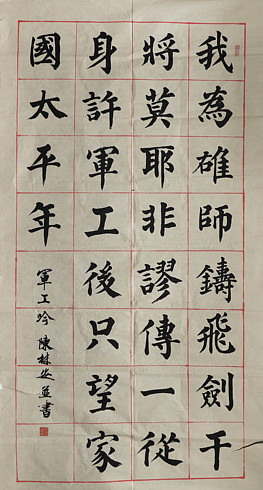 我為雄師鑄飛劍干
將莫耶非謬傳一從
身許軍工後只望家
國太平年
軍工吟 陳林安並書